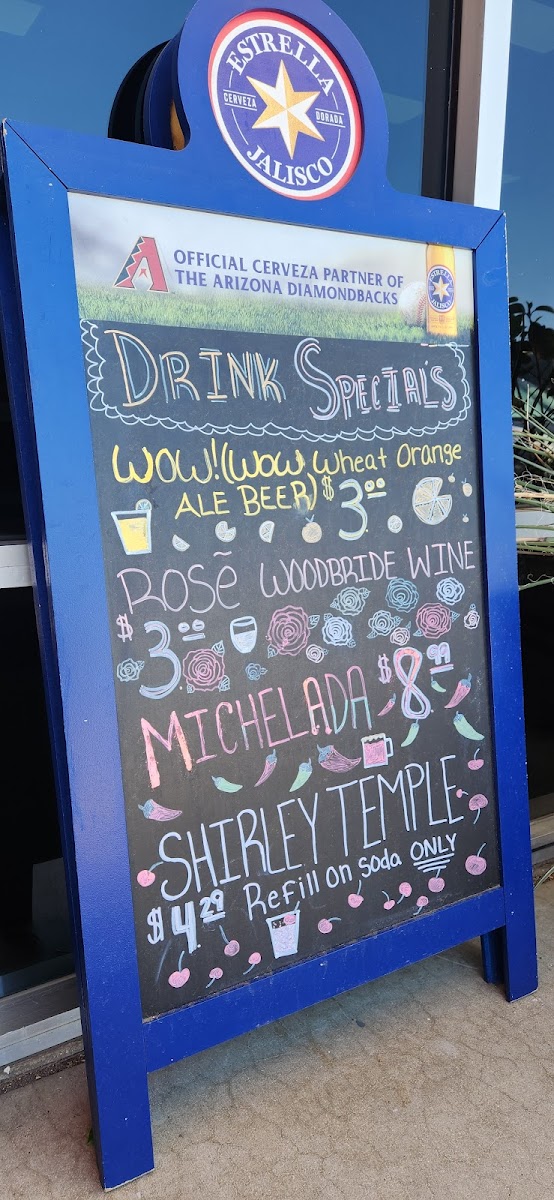 ESTRELLA
CERVEZA DORADA
JALISCO
A
OFFICIAL CERVEZA PARTNER OF
THE ARIZONA DIAMONDBACKS
ESTRELLA
JALISCO
DRINK SPECIAL'S
WOW! (WOW Wheat Orange
ALE BEER) $3.00
ROSē WOODBRIDE WINE
$3.00
MICHELADA $8.99
SHIRLEY TEMPLE
$4.29 Refill on Soda ONLY